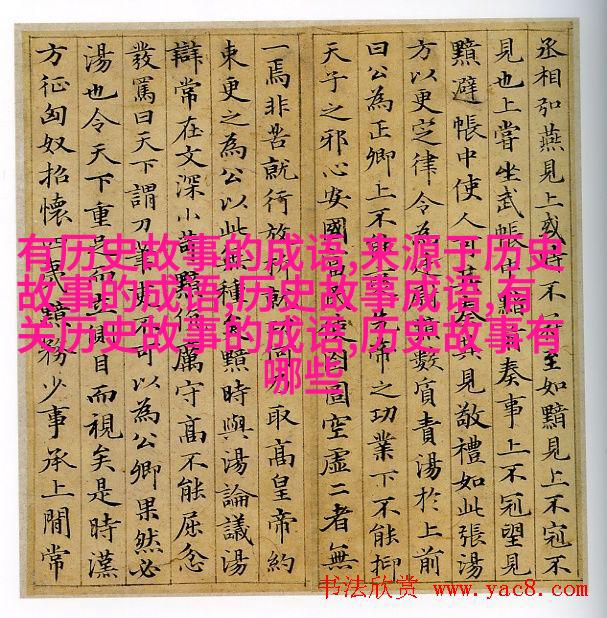 丞相弘燕見上或時不冠至如黯見上不冠不
見也上嘗坐武帳中黯前奏事上不冠望見
黯避帳中使人可其奏其見敬禮如此張湯
方以更定律令為廷尉黯數質責湯於上前
曰公為正卿上不先帝之功業下不能抑
天子之邪心安國富空虛二者無
一焉非苦就行放析就取高皇帝約
束更之為公以此無種矣黯時與湯論議湯
辯常在文深小苛黯厲守高不能屈忿
發罵曰天下謂刀筆吏不可以為公卿果然必
湯也令天下重足而立側目而視矣是時漢
方征匈奴招懷四夷黯務少事承上間常
有历史故事的成语,来源于历史
故事的成语,历史故事成语,有
关历史故事的成语,历史故事有
哪些
书法欣赏 www.yac8.com